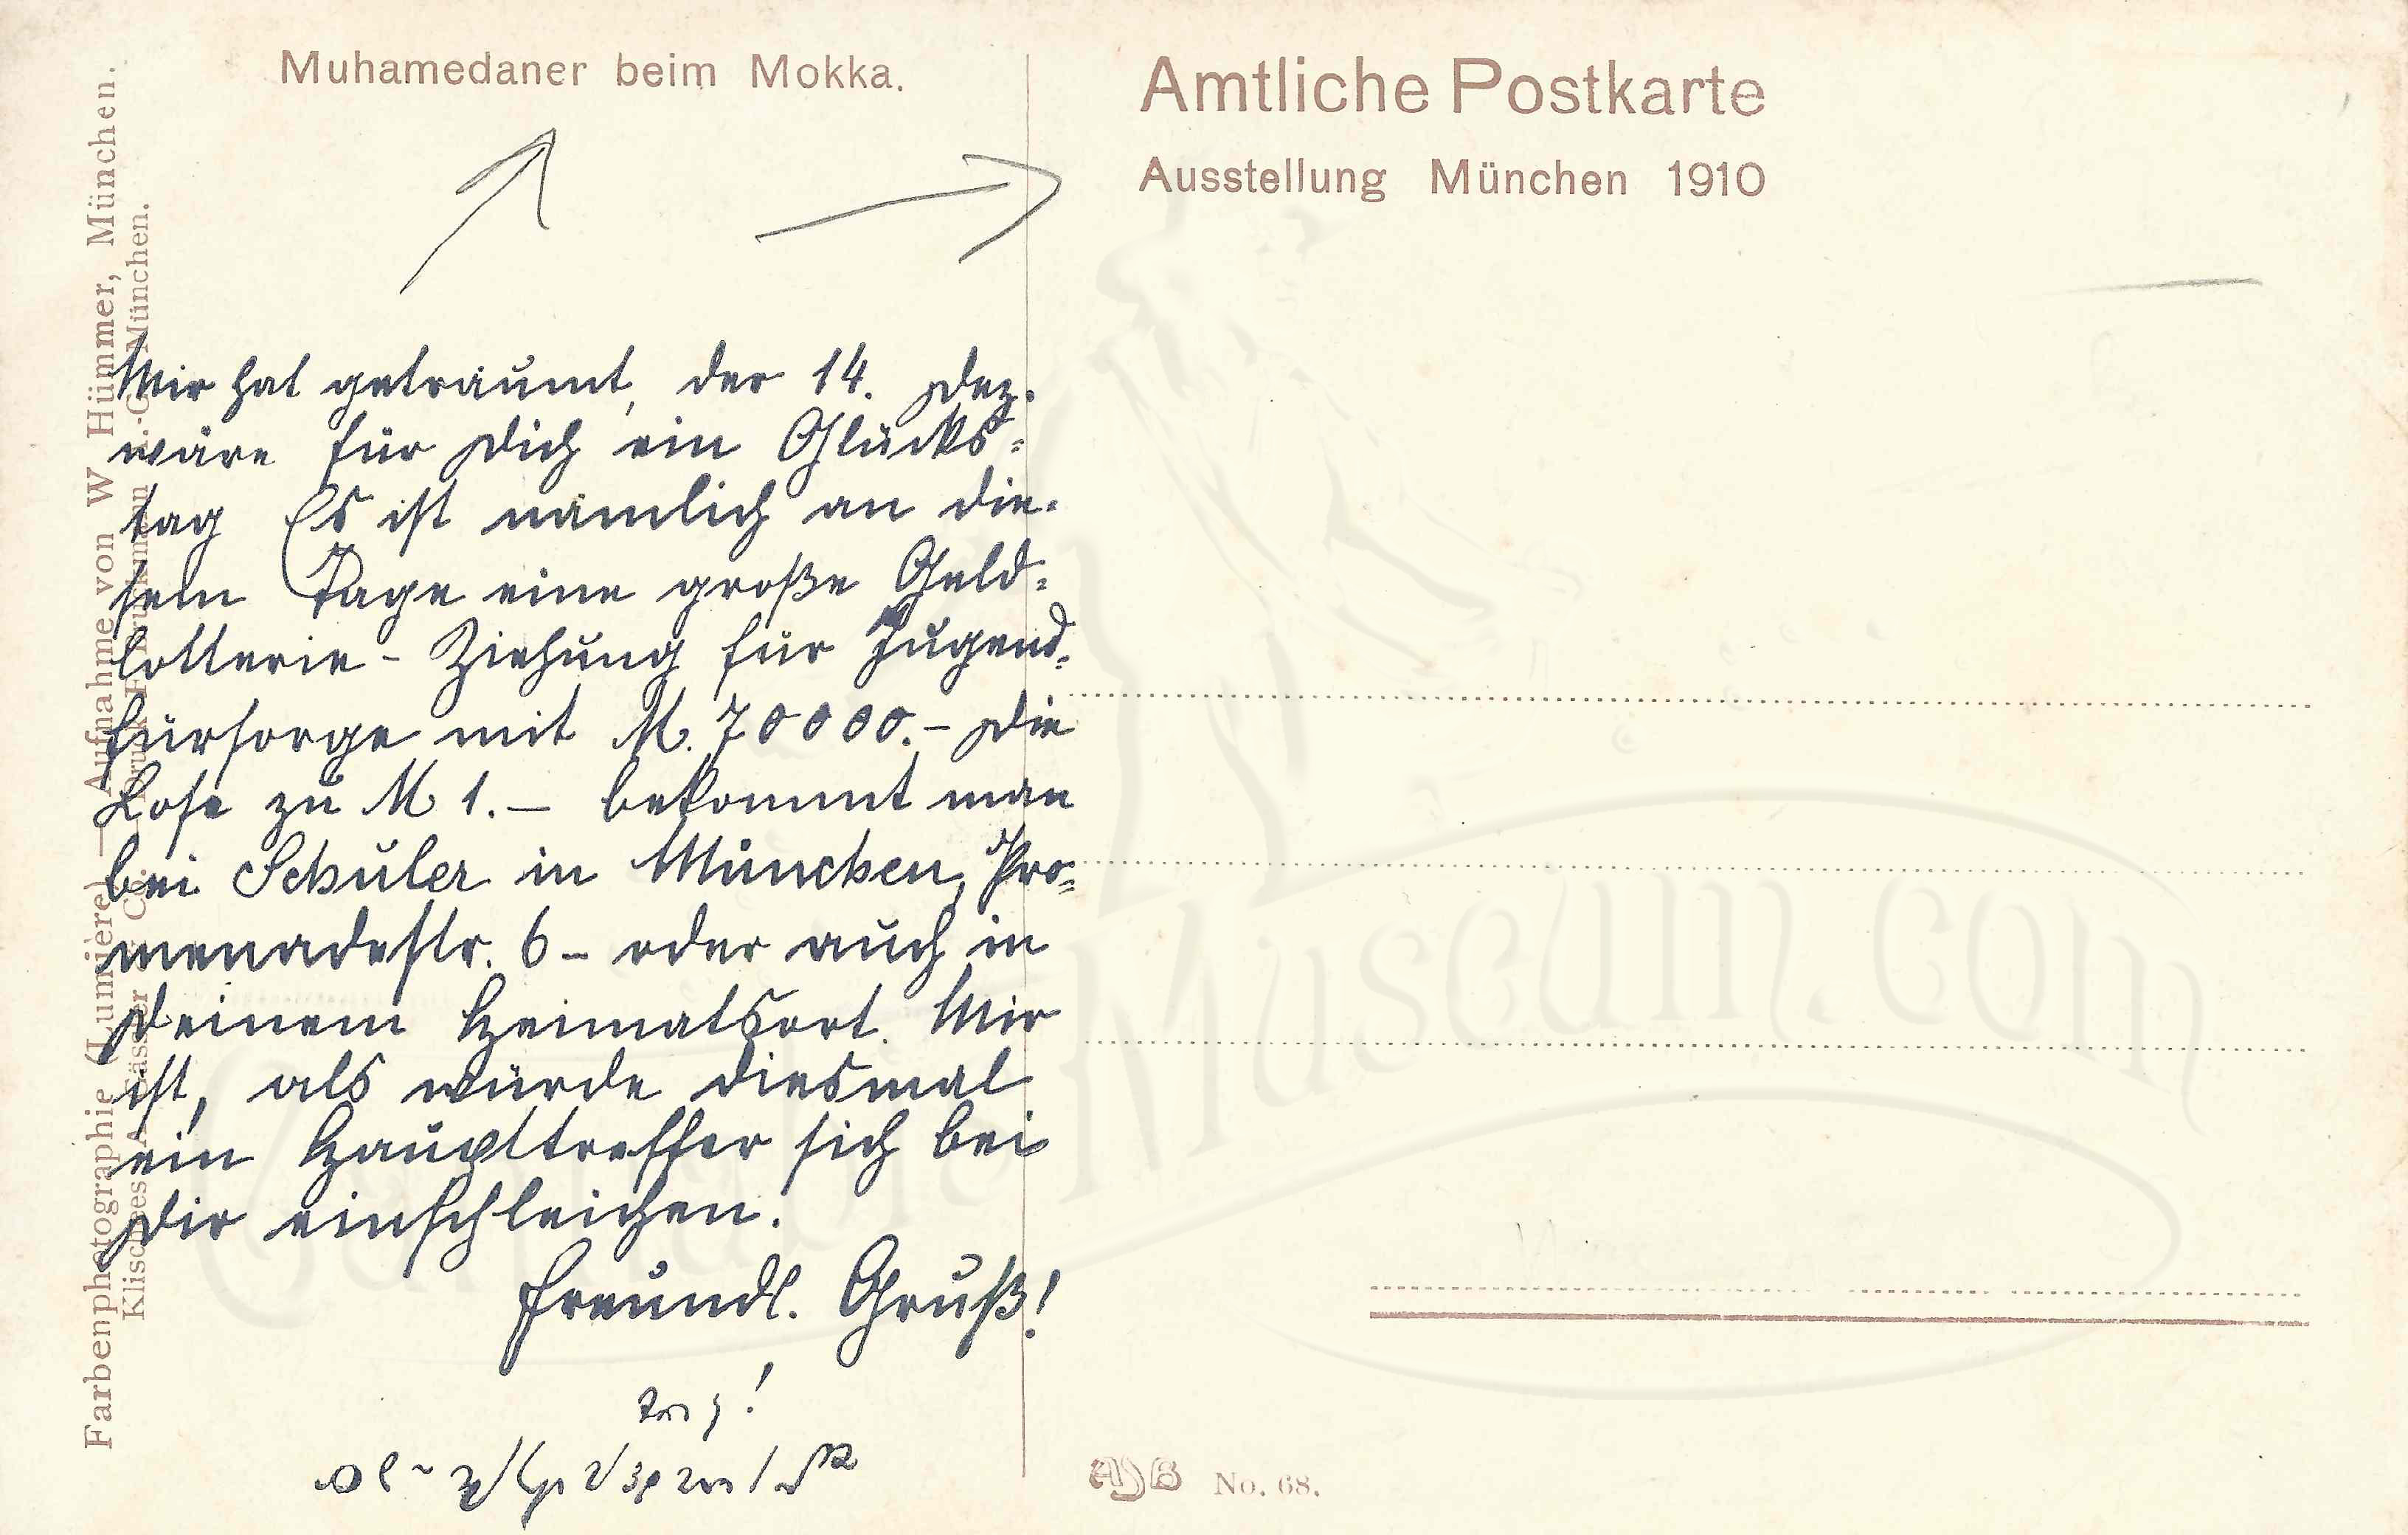 Muhamedaner beim Mokka.
Amtliche Postkarte
Ausstellung München 1910
Mir hat geträumt, der 14. Dez.
wäre für Dich ein Glücks=
tag Es ist nämlich an die-
sem Tage eine große Geld=
lotterie - Ziehung für Jugend=
fürsorge mit M. 70000.- Die
Lose zu M 1.— bekommt man
bei Schuler in München, Pro=
menadestr. 6 - oder auch in
Deinem Heimatsort. Mir
ist, als würde diesmal
ein Haupttreffer sich bei
Dir einschleichen.
Freundl. Gruß!
Farbenphotographie (Lumière) — Aufnahme von W Hümmer, München.
München.
No. 68.
Museum.com